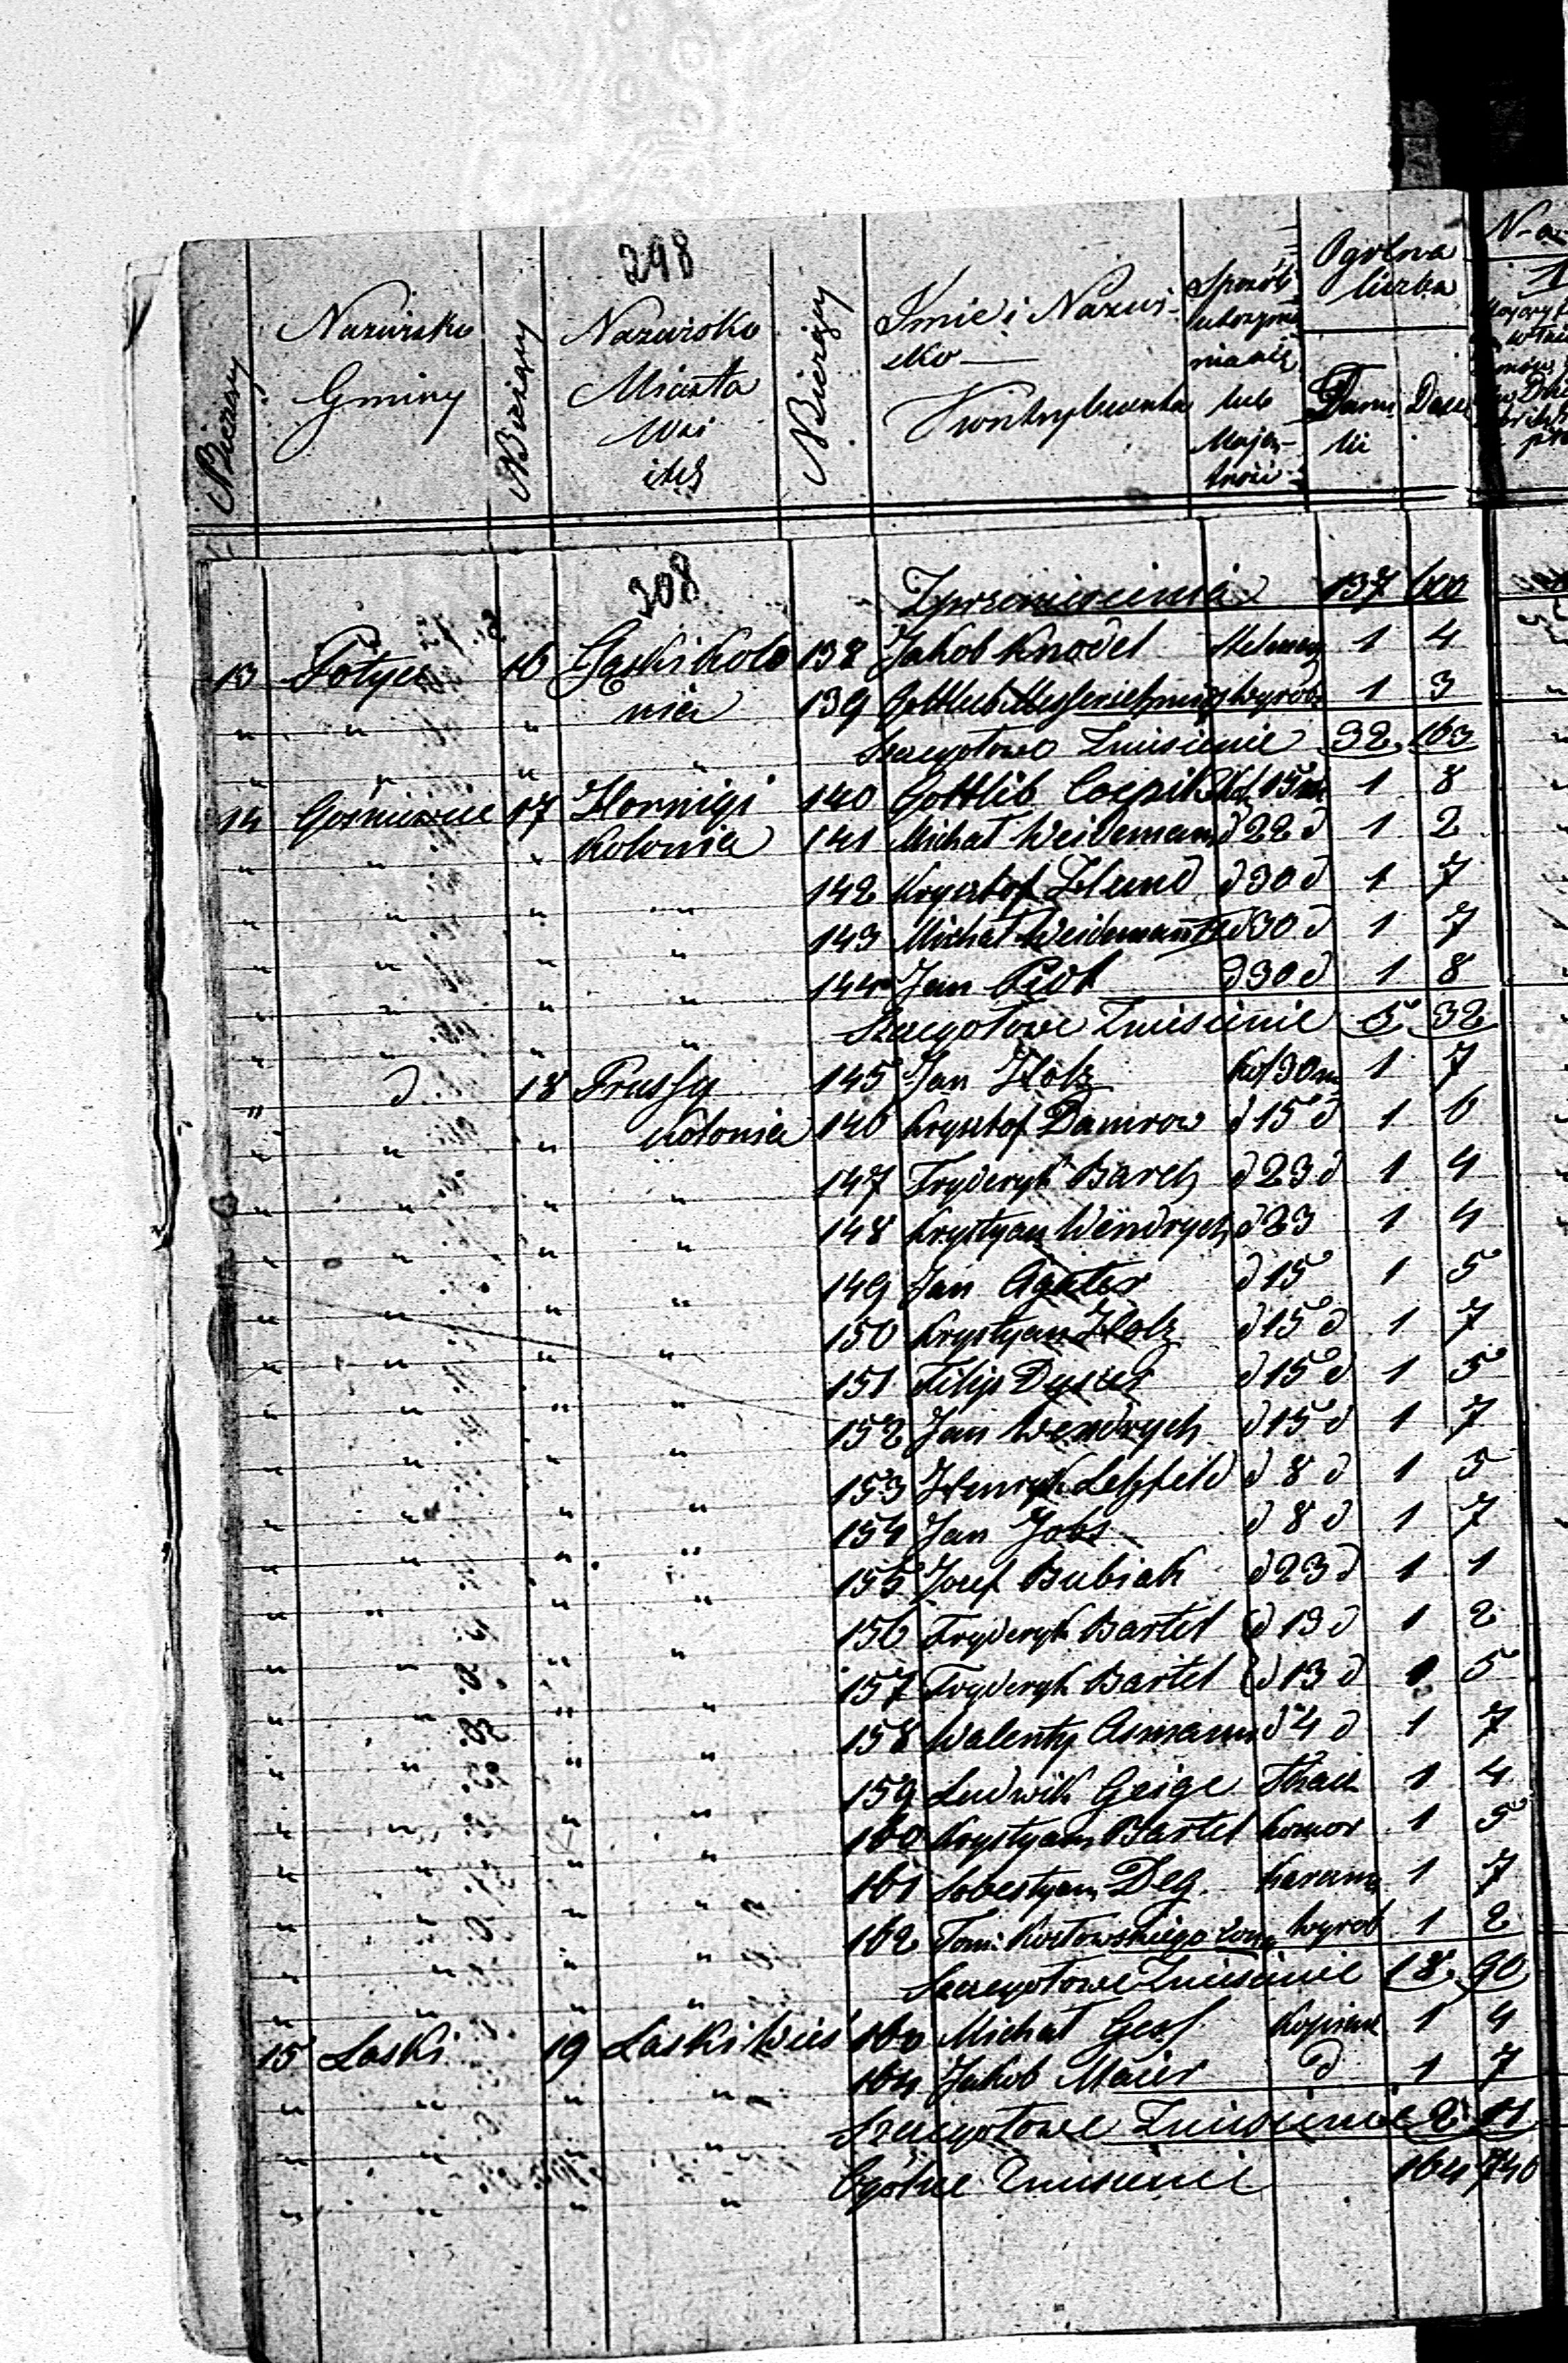 298
N Bieżący
Nazwisko Gminy
N Bieżący
Nazwisko Miasta Wsi itd
N Bieżący
Imie i Nazwisko Kontrybuenta
Sposób utrzymania lub Majętności
Ogólna liczba
Familii Dusz
308
Z przeniesienia 137 600
13 Potycz 16 Laski Kolo 138 Jakob Knodel Stelmach 1 4
" " nia 139 Gottlieb Messerschmidt Wyrob 1 3
Szczegołowe Zniesienie 32 163
14 Gośniewice 17 Hornigi 140 Gottlib 15 1 8
" " " Kolonia 141 Michał Weideman d 22 d 1 2
142 Krysztof d 30 d 1 7
143 Michał Weidemann d 30 d 1 7
144 Jan d 30 d 1 8
Szczegołowe Zniesienie 5 32
" d 18 Prussy 145 Jan Holz Kol 30 m 1 7
" " " Kolonia 146 Krysztof Damrow d 15 d 1 6
147 Fryderyk Barch d 23 d 1 4
148 Krystyan Wendrych d 23 1 4
149 Jan Agater d 15 1 5
150 Krystyan Holz d 15 d 1 7
151 Filip d 15 d 1 5
152 Jan Wendrych d 15 d 1 7
153 Henryk Lehfeld d 8 d 1 5
154 Jan Jobs d 8 d 1 7
155 Jozef Bubiak d 23 d 1 1
156 Fryderyk Bartel d 13 d 1 2
157 Fryderyk Bartel d 13 d 1 5
158 Walenty Asmann d 4 d 1 7
159 Ludwik Geige Tkacz 1 4
160 Krystyan Bartel Komor 1 5
161 Sobestyan Deg Karczma 1 7
162 Tom: Kozłowskiego żona wyrob 1 2
Szczegołowe Zniesienie 18 90
15 Laski 19 Laski Wieś 163 Michał 1 4
164 Jakob Maier d 1 7
Szczegołowe Zniesienie 2 11
Ogólne Zniesienie 164 740